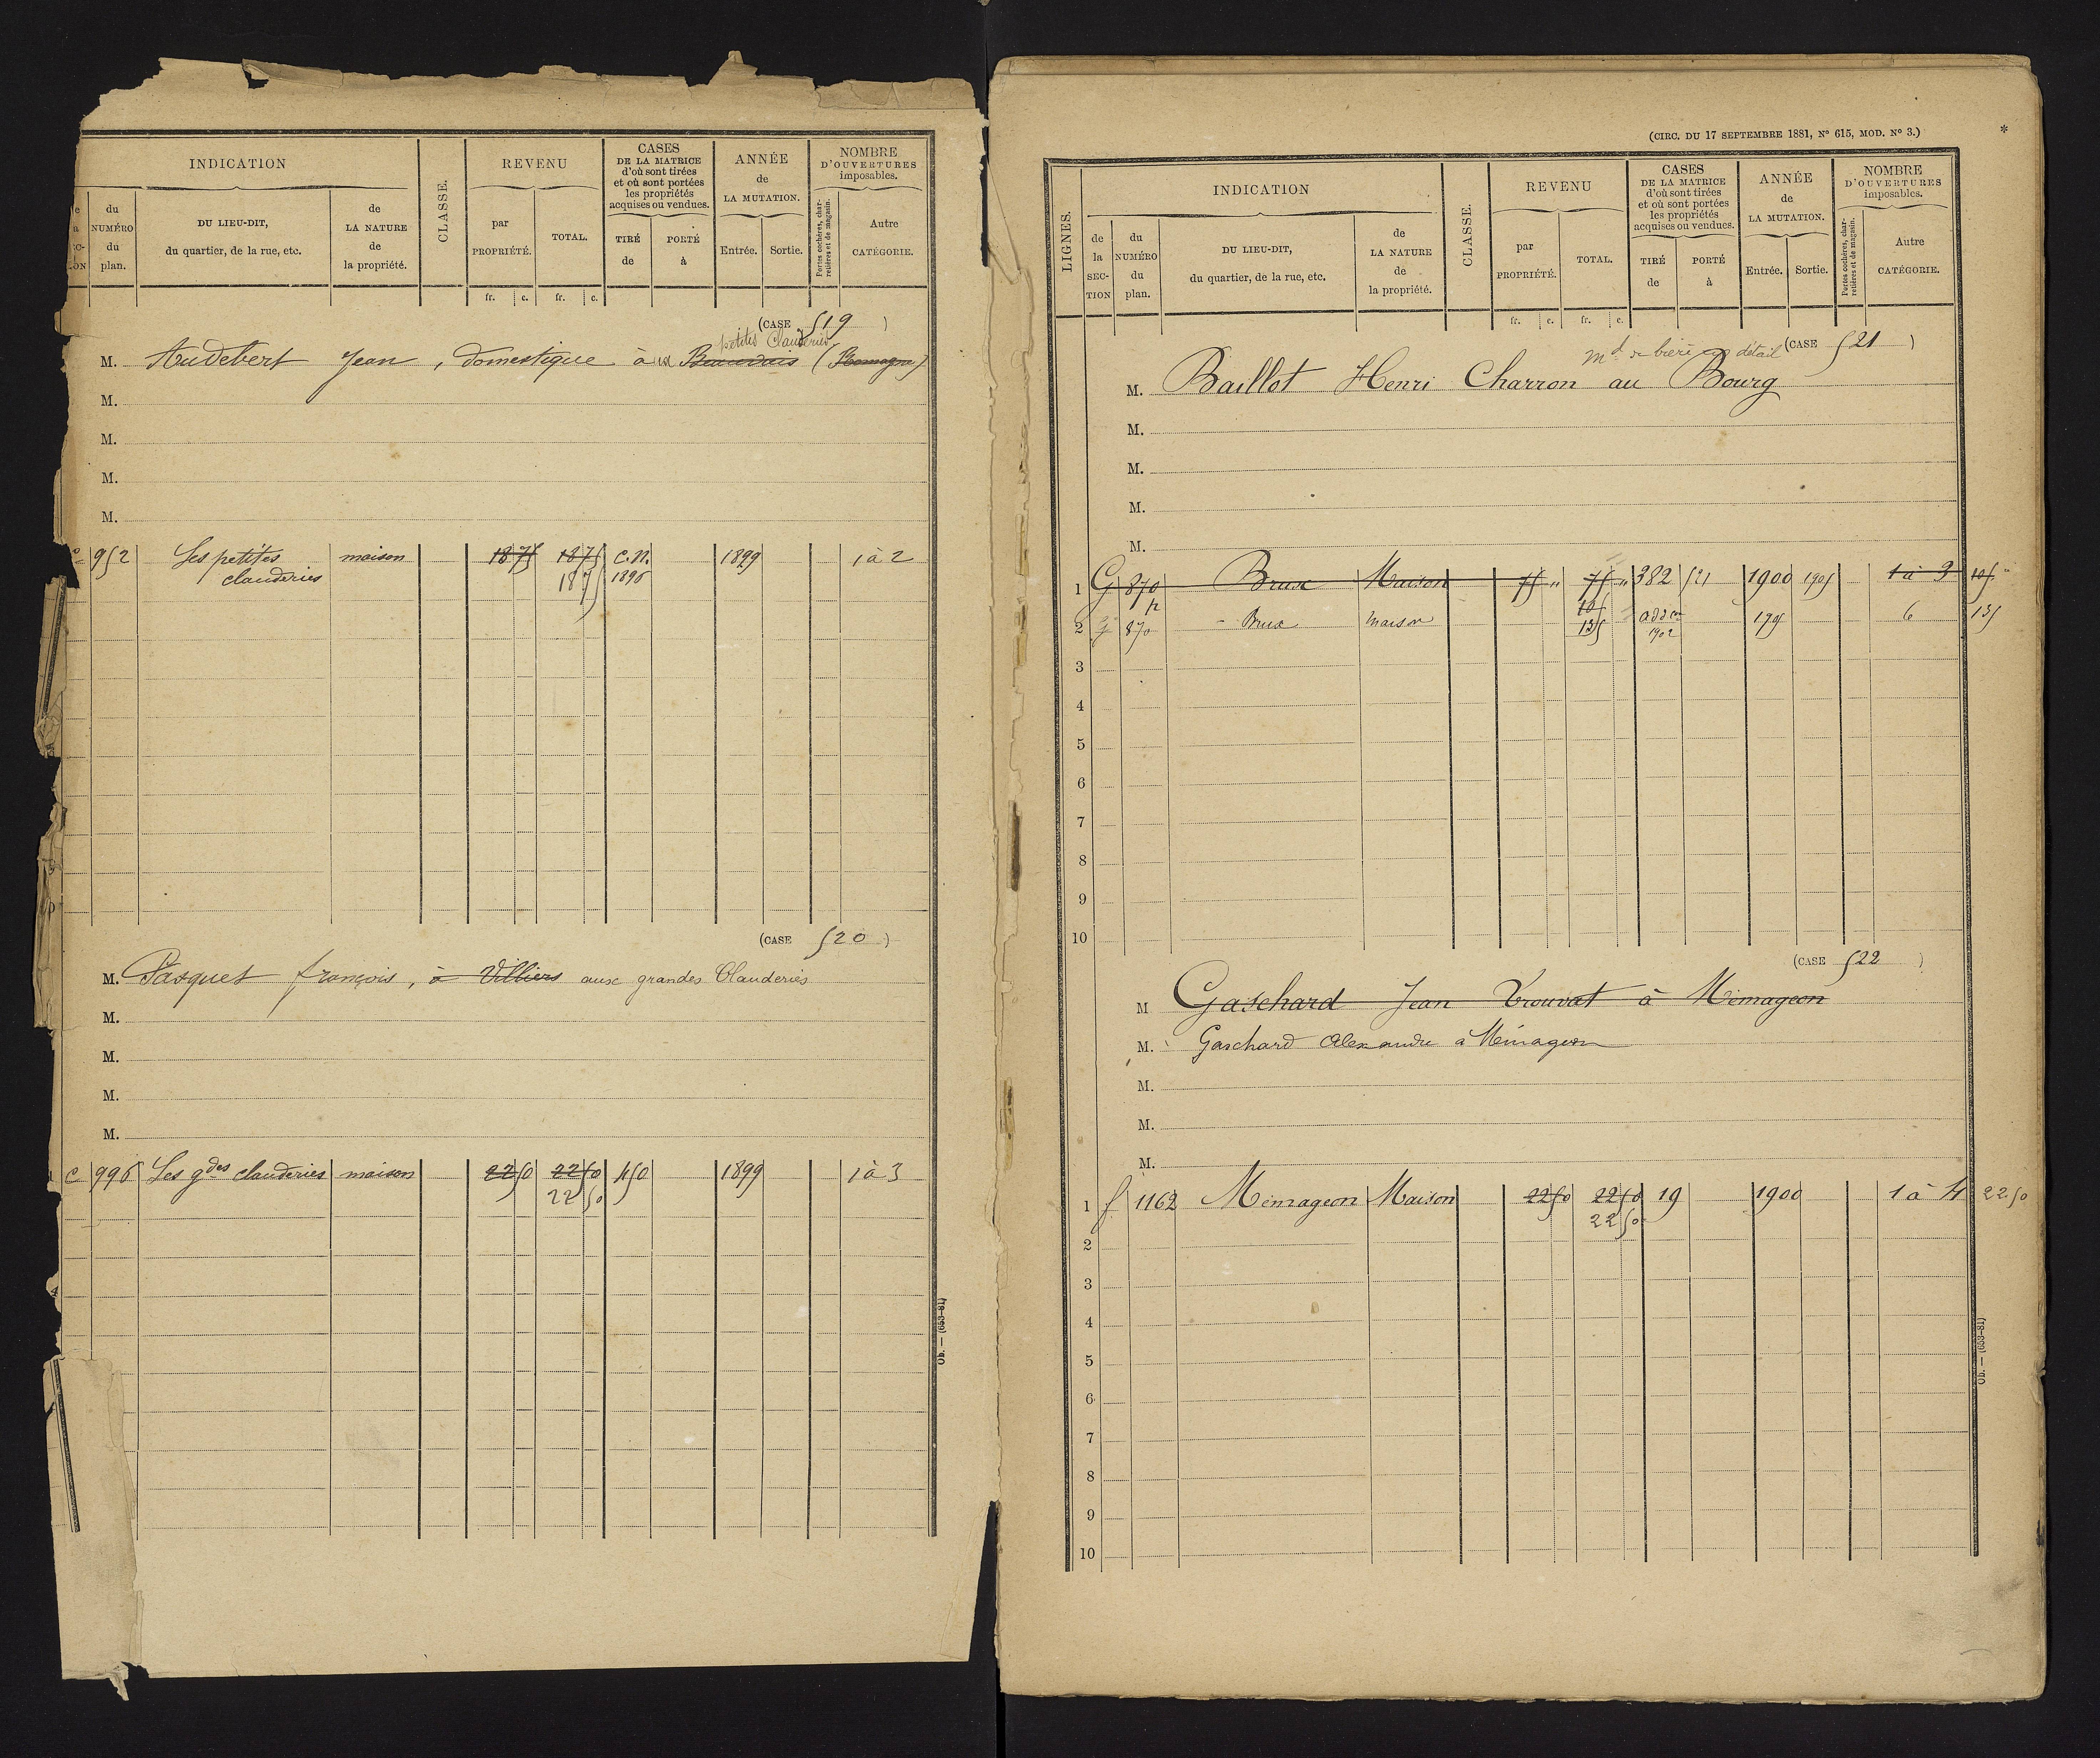 INDICATION
CLASSE.
REVENU
CASES
DE LA MATRICE
d'où sont tirées
et où sont portées
les propriétés
acquises ou vendues.
ANNÉE
de
LA MUTATION.
NOMBRE
D'OUVERTURES
imposables.
du
NUMÉRO
du
plan.
DU LIEU-DIT,
du quartier, de la rue, etc.
de
LA NATURE
de
la propriété.
par
PROPRIÉTÉ.
TOTAL.
TIRÉ
de
PORTÉ
à
Entrée.
Sortie.
Portes cochères, char-
retières et de magasin.
Autre
CATÉGORIE.
fr. c. fr. c.
(CASE 519 )
petites Clauderies
M. Audebert Jean, domestique à ux Beauvais (Romagne)
M.
M.
M.
M.
952 Les petites maison 1875 1875 C.N. 1899 1 à 2
clauderies 1875 1896
(CASE 520 )
M. Pasquet françois, à Villiers aux grandes Clauderies
M.
M.
M.
M.
C 996 Les gdes clauderies maison 2250 2250 450 1899 1 à 3
2250
Ob. — (653-81)
(CIRC. DU 17 SEPTEMBRE 1881, N° 615, MOD. N° 3.)
*
LIGNES.
INDICATION
CLASSE.
REVENU
CASES
DE LA MATRICE
d'où sont tirées
et où sont portées
les propriétés
acquises ou vendues.
ANNÉE
de
LA MUTATION.
NOMBRE
D'OUVERTURES
imposables.
de
la
SEC-
TION
du
NUMÉRO
du
plan.
DU LIEU-DIT,
du quartier, de la rue, etc.
de
LA NATURE
de
la propriété.
par
PROPRIÉTÉ.
TOTAL.
TIRÉ
de
PORTÉ
à
Entrée.
Sortie.
Portes cochères, char-
retières et de magasin.
Autre
CATÉGORIE.
fr. c. fr. c.
(CASE 521 )
md de bière en détail
M. Baillot Henri Charron au Bourg
M.
M.
M.
M.
1 G 870 Brux Maison 75 " 75 " 382 521 1900 1905 1 à 3 105 "
p 105
2 G 870 - Brux maison 135 addon 1905 6 135
1902
3
4
5
6
7
8
9
10
(CASE 522 )
M Gaschard Jean Trouvat à Mémageon
M. Gaschard Alexandre à Mémageon
M.
M.
M.
1 f 1162 Mémageon Maison 2250 2250 19 1900 1 à 4 2250
2250
2
3
4
5
6
7
8
9
10
Ob. — (653-81)